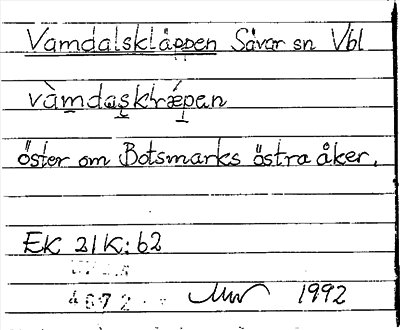 Vamdalskläppen Sävar sn Vbl
vàmdaskłǽpen
öster om Botsmarks östra åker.
EK 21K:62
1992